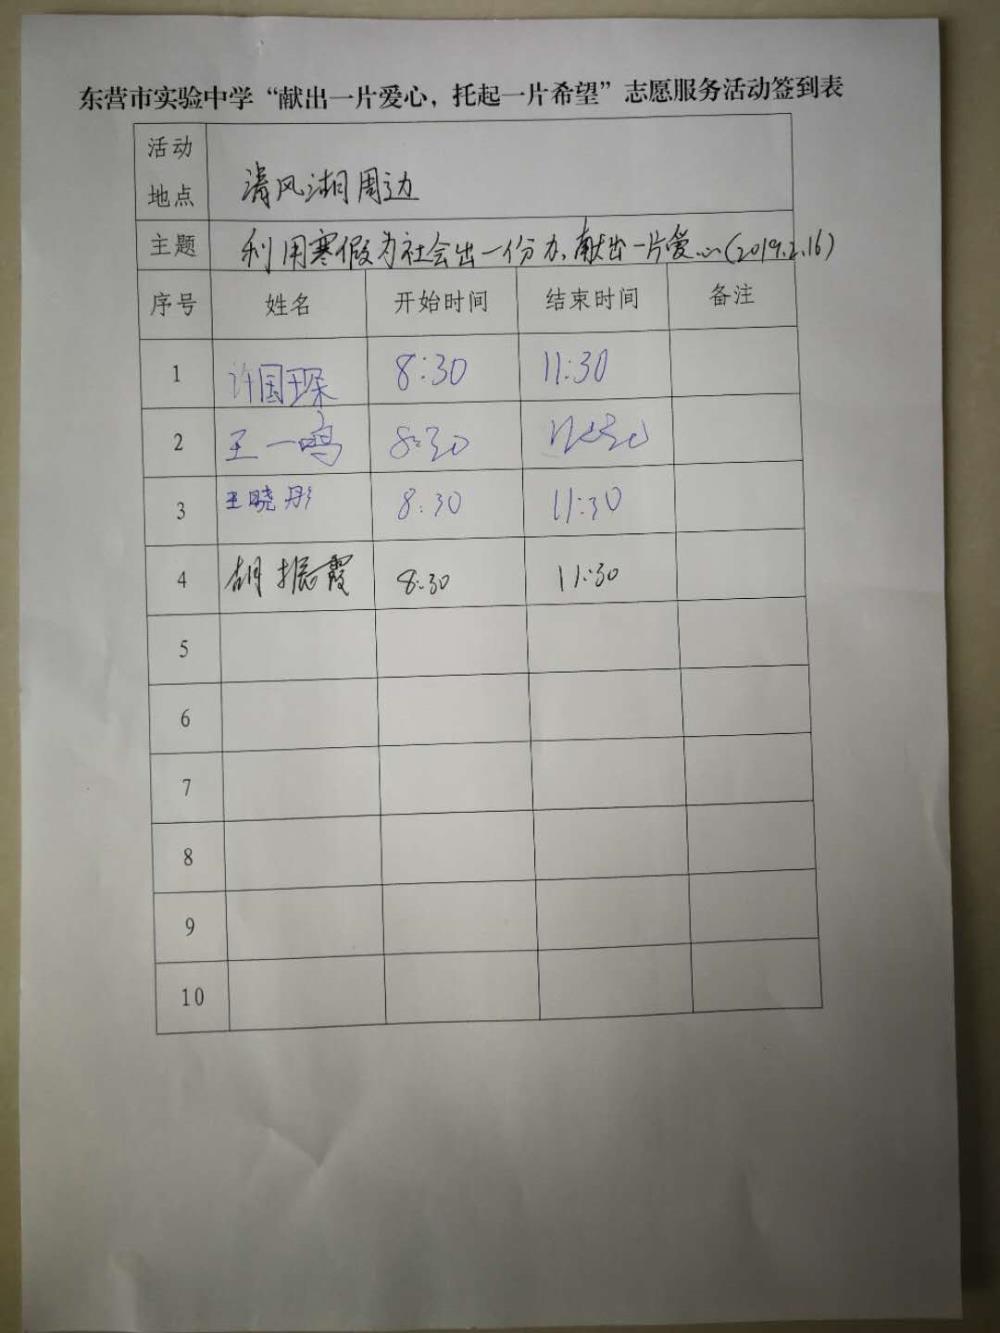 东营市实验中学“献出一片爱心，托起一片希望”志愿服务活动签到表
活动
地点
清风湖周边
主题
利用寒假为社会出一份力、献出一片爱心(2019.2.16)
序号 姓名 开始时间 结束时间 备注
1 许国琛 8:30 11:30
2 王一鸣 8:30 11:30
3 王晓彤 8:30 11:30
4 胡振霞 8:30 11:30
5
6
7
8
9
10